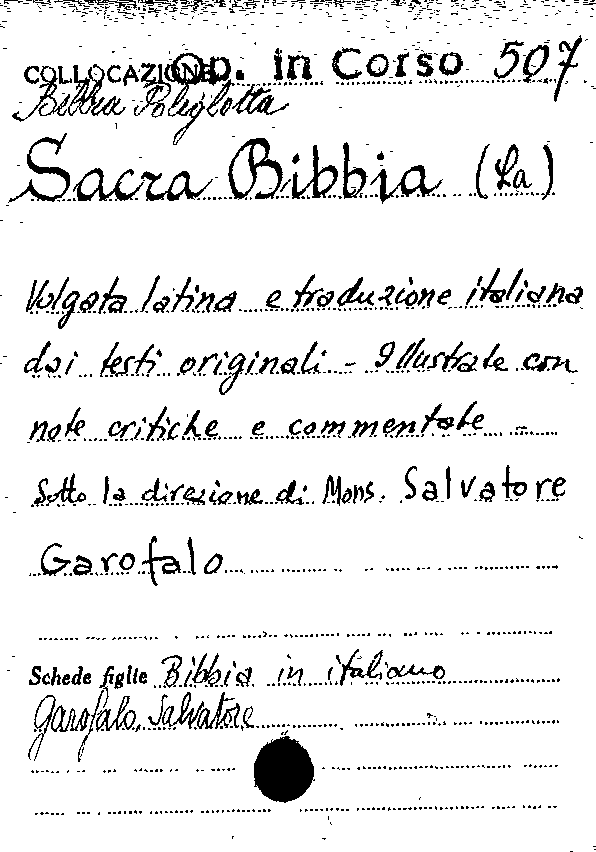 COLLOCAZIONE Op. in Corso 507
Bibbia Poliglotta
Sacra Bibbia (La)
Volgata latina e traduzione italiana
dai testi originali - Illustrate con
note critiche e commentate -
Sotto la direzione di Mons. Salvatore
Garofalo
Schede figlie Bibbia in italiano
Garofalo, Salvatore